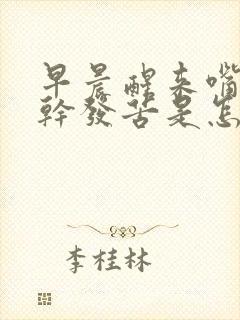 早晨醒来嘴
幹發苦是怎
李桂林